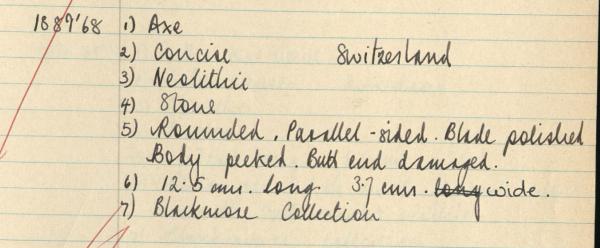 1889'68 1) Axe
2) Concise Switzerland
3) Neolithic
4) Stone
5) Rounded. Parallel-sided. Blade polished
Body pecked. Butt end damaged.
6) 12.5 cms. long 3.7 cms. long wide.
7) Blackmore Collection